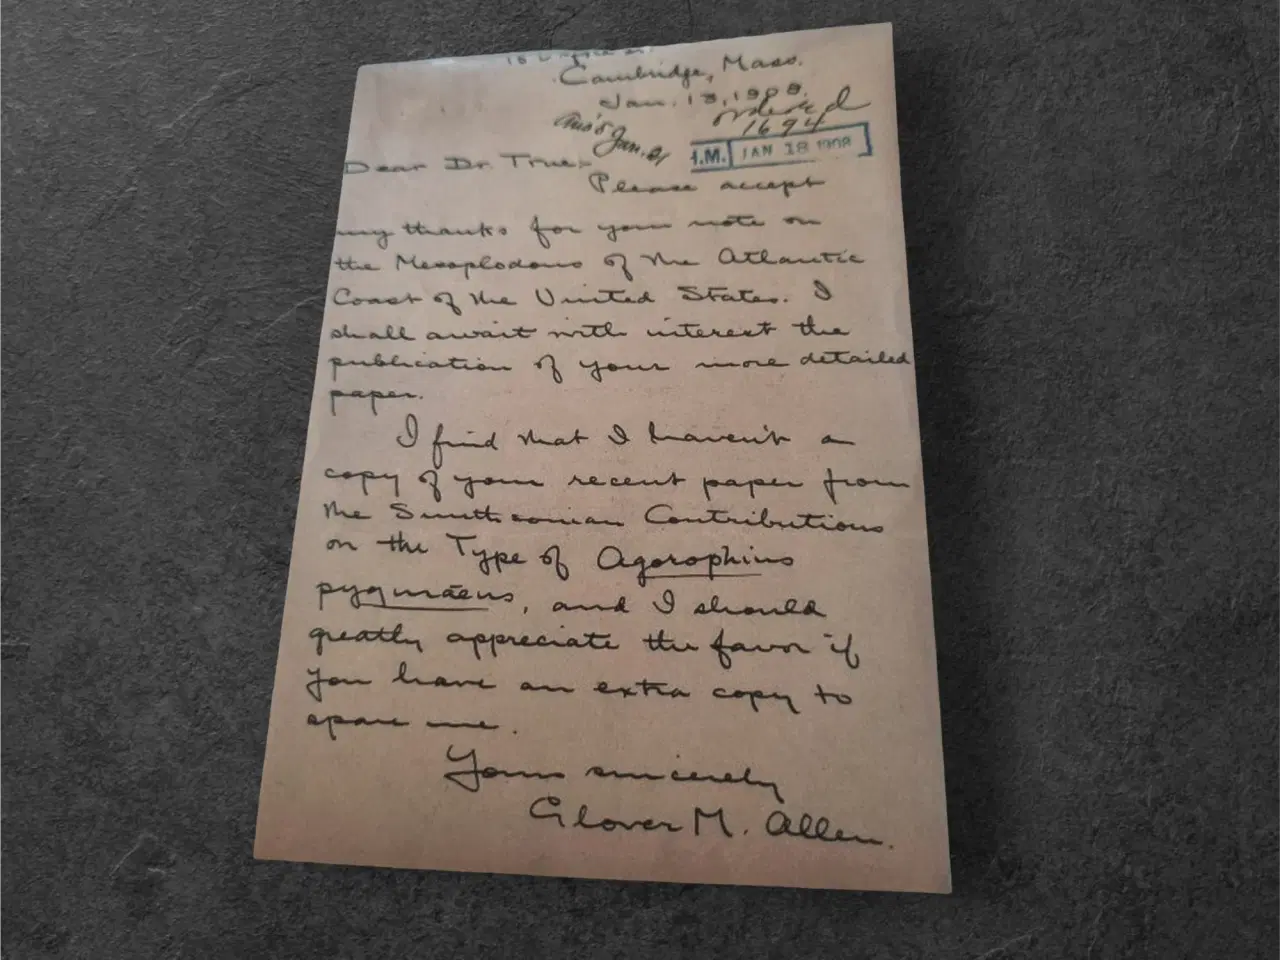 Cambridge, Mass.
Jan. 18, 1908.
ordered
1694
Ans'd
Jan. 21
.M. JAN 18 1908
Dear Dr. True:
Please accept
my thanks for your note on
the Mesoplodons of the Atlantic
Coast of the United States. I
shall await with interest the
publication of your more detailed
paper.
I find that I haven't a
copy of your recent paper from
the Smithsonian Contributions
on the Type of Agorophius
pygmaeus, and I should
greatly appreciate the favor if
you have an extra copy to
spare me.
Yours sincerely
Glover M. Allen.